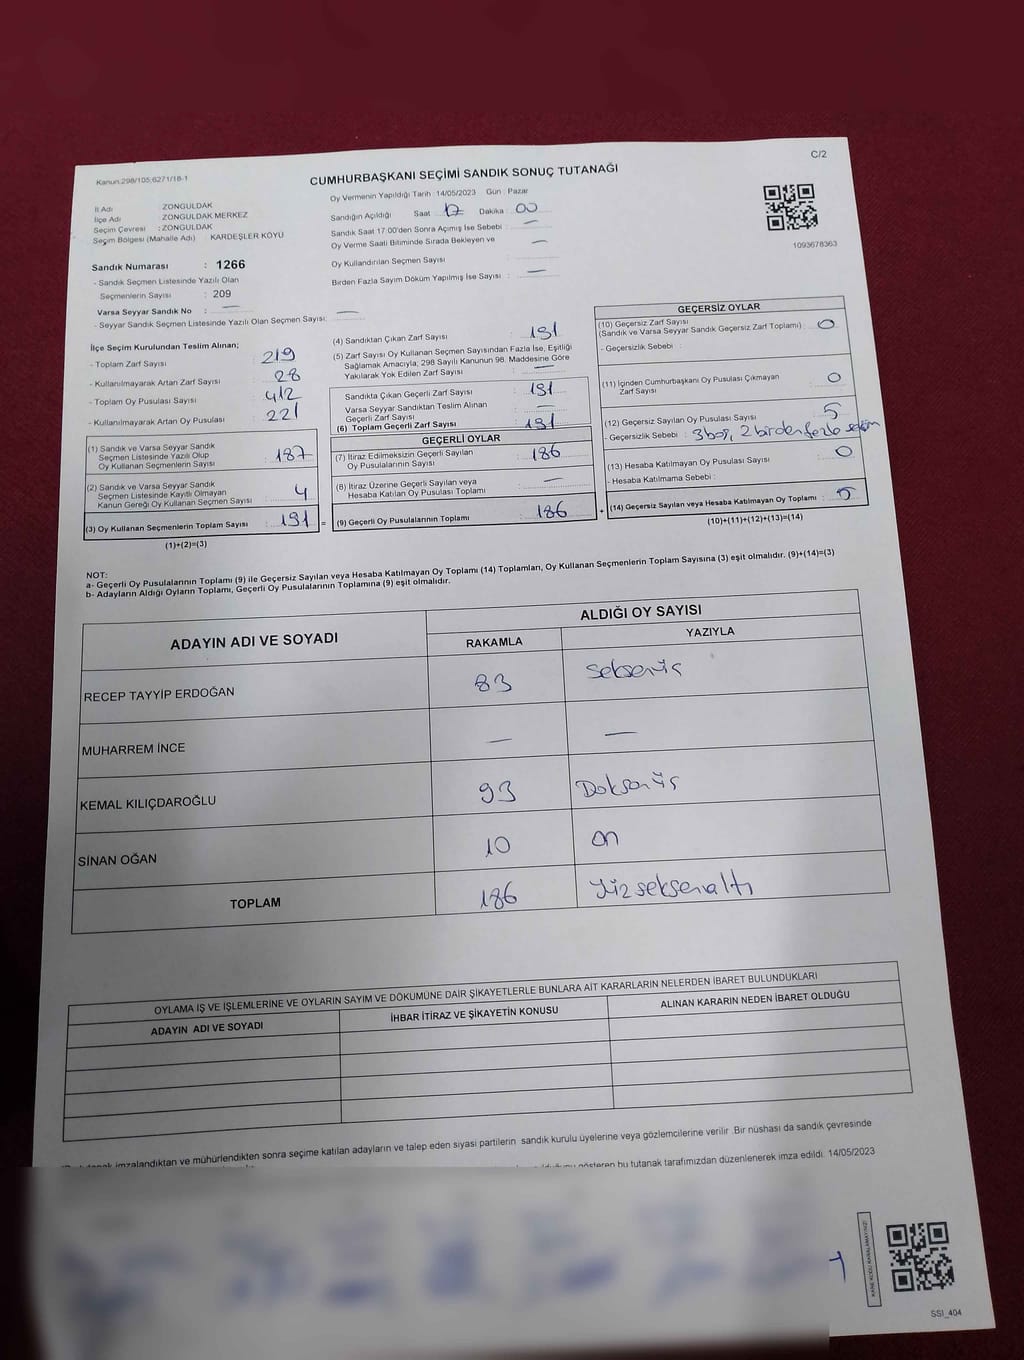 C/2
Kanun:298/105;6271/18-1
CUMHURBAŞKANI SEÇİMİ SANDIK SONUÇ TUTANAĞI
İl Adı : ZONGULDAK
İlçe Adı : ZONGULDAK MERKEZ
Seçim Çevresi : ZONGULDAK
Seçim Bölgesi (Mahalle Adı) : KARDEŞLER KÖYÜ
Oy Vermenin Yapıldığı Tarih : 14/05/2023 Gün : Pazar
Sandığın Açıldığı Saat : 17 Dakika : 00
Sandık Saat 17:00'den Sonra Açılmış İse Sebebi : —
Oy Verme Saati Bitiminde Sırada Bekleyen ve —
Oy Kullandırılan Seçmen Sayısı :
Birden Fazla Sayım Döküm Yapılmış İse Sayısı : —
1093678363
Sandık Numarası : 1266
- Sandık Seçmen Listesinde Yazılı Olan
Seçmenlerin Sayısı : 209
Varsa Seyyar Sandık No : —
- Seyyar Sandık Seçmen Listesinde Yazılı Olan Seçmen Sayısı: —
İlçe Seçim Kurulundan Teslim Alınan;
- Toplam Zarf Sayısı : 219
- Kullanılmayarak Artan Zarf Sayısı : 28
- Toplam Oy Pusulası Sayısı : 412
- Kullanılmayarak Artan Oy Pusulası : 221
(1) Sandık ve Varsa Seyyar Sandık
Seçmen Listesinde Yazılı Olup
Oy Kullanan Seçmenlerin Sayısı : 187
(2) Sandık ve Varsa Seyyar Sandık
Seçmen Listesinde Kayıtlı Olmayan
Kanun Gereği Oy Kullanan Seçmen Sayısı : 4
(3) Oy Kullanan Seçmenlerin Toplam Sayısı : 191 =
(1)+(2)=(3)
(4) Sandıktan Çıkan Zarf Sayısı : 191
(5) Zarf Sayısı Oy Kullanan Seçmen Sayısından Fazla İse, Eşitliği
Sağlamak Amacıyla; 298 Sayılı Kanunun 98. Maddesine Göre
Yakılarak Yok Edilen Zarf Sayısı : —
Sandıkta Çıkan Geçerli Zarf Sayısı : 191
Varsa Seyyar Sandıktan Teslim Alınan
Geçerli Zarf Sayısı : —
(6) Toplam Geçerli Zarf Sayısı : 191
GEÇERLİ OYLAR
(7) İtiraz Edilmeksizin Geçerli Sayılan
Oy Pusulalarının Sayısı : 186
(8) İtiraz Üzerine Geçerli Sayılan veya
Hesaba Katılan Oy Pusulası Toplamı : —
(9) Geçerli Oy Pusulalarının Toplamı : 186 +
GEÇERSİZ OYLAR
(10) Geçersiz Zarf Sayısı
(Sandık ve Varsa Seyyar Sandık Geçersiz Zarf Toplamı) : 0
- Geçersizlik Sebebi :
(11) İçinden Cumhurbaşkanı Oy Pusulası Çıkmayan
Zarf Sayısı : 0
(12) Geçersiz Sayılan Oy Pusulası Sayısı : 5
- Geçersizlik Sebebi : 3 boş, 2 birden fazla seçim
(13) Hesaba Katılmayan Oy Pusulası Sayısı : 0
- Hesaba Katılmama Sebebi :
(14) Geçersiz Sayılan veya Hesaba Katılmayan Oy Toplamı : 5
(10)+(11)+(12)+(13)=(14)
NOT:
a- Geçerli Oy Pusulalarının Toplamı (9) ile Geçersiz Sayılan veya Hesaba Katılmayan Oy Toplamı (14) Toplamları, Oy Kullanan Seçmenlerin Toplam Sayısına (3) eşit olmalıdır. (9)+(14)=(3)
b- Adayların Aldığı Oyların Toplamı, Geçerli Oy Pusulalarının Toplamına (9) eşit olmalıdır.
ADAYIN ADI VE SOYADI
ALDIĞI OY SAYISI
RAKAMLA YAZIYLA
RECEP TAYYİP ERDOĞAN 83 Seksenüç
MUHARREM İNCE — —
KEMAL KILIÇDAROĞLU 93 Doksanüç
SİNAN OĞAN 10 on
TOPLAM 186 Yüzseksenaltı
OYLAMA İŞ VE İŞLEMLERİNE VE OYLARIN SAYIM VE DÖKÜMÜNE DAİR ŞİKAYETLERLE BUNLARA AİT KARARLARIN NELERDEN İBARET BULUNDUKLARI
ADAYIN ADI VE SOYADI İHBAR İTİRAZ VE ŞİKAYETİN KONUSU ALINAN KARARIN NEDEN İBARET OLDUĞU
tutanak imzalandıktan ve mühürlendikten sonra seçime katılan adayların ve talep eden siyasi partilerin sandık kurulu üyelerine veya gözlemcilerine verilir. Bir nüshası da sandık çevresinde
gösteren bu tutanak tarafımızdan düzenlenerek imza edildi. 14/05/2023
KARE KODU KARALAMAYINIZ!
SSI_404